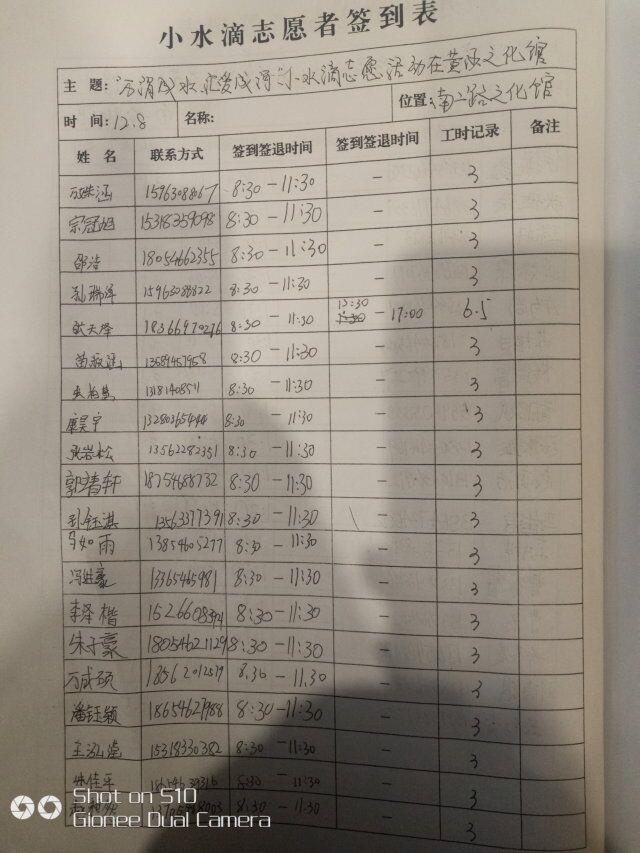 小水滴志愿者签到表
主 题: "万涓成水,汇爱成河"小水滴志愿活动在黄河文化馆
时 间: 12.8 名称: 位置: 南二路文化馆
姓 名 联系方式 签到签退时间 签到签退时间 工时记录 备注
8:30-11:30 - 3
宗冠旭 15318359098 8:30-11:30 - 3
邵浩 18054662355 8:30-11:30 - 3
孔瑞泽 15963088822 8:30-11:30 - 3
8:30-11:30 13:30 - 17:00 6.5
8:30-11:30 - 3
8:30-11:30 - 3
廉昊宇 8:30-11:30 - 3
张岩松 13562282351 8:30-11:30 - 3
郭靖轩 18754688732 8:30-11:30 - 3
孙钰淇 13563377391 8:30-11:30 - 3
马如雨 13854605277 8:30-11:30 - 3
冯进豪 13365465981 8:30-11:30 - 3
李泽楷 8:30-11:30 - 3
朱子豪 18054621129 8:30-11:30 - 3
万成硕 18562012579 8:30-11:30 - 3
潘钰颖 18654627988 8:30-11:30 - 3
王泓滢 15318330382 8:30-11:30 - 3
8:30-11:30 - 3
8:30-11:30 - 3
Shot on S10
Gionee Dual Camera